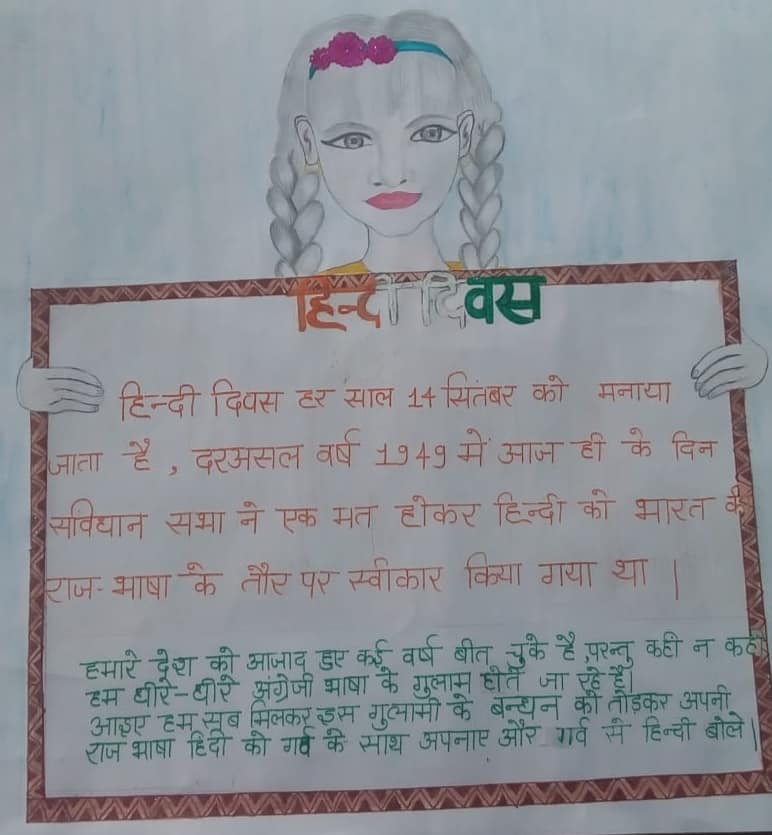 हिन्दी दिवस
हिन्दी दिवस हर साल 14 सितंबर को मनाया
जाता है , दरअसल वर्ष 1949 में आज ही के दिन
सविधान सभा ने एक मत होकर हिन्दी को भारत की
राज-भाषा के तौर पर स्वीकार किया गया था |
हमारे देश को आजाद हुए कई वर्ष बीत चुके है परन्तु कही न कही
हम धीरे-धीरे अंग्रेजी भाषा के गुलाम होते जा रहे है|
आइए हम सब मिलकर इस गुलामी के बन्धन को तोड़कर अपनी
राज भाषा हिंदी को गर्व के साथ अपनाए और गर्व से हिन्दी बोले |